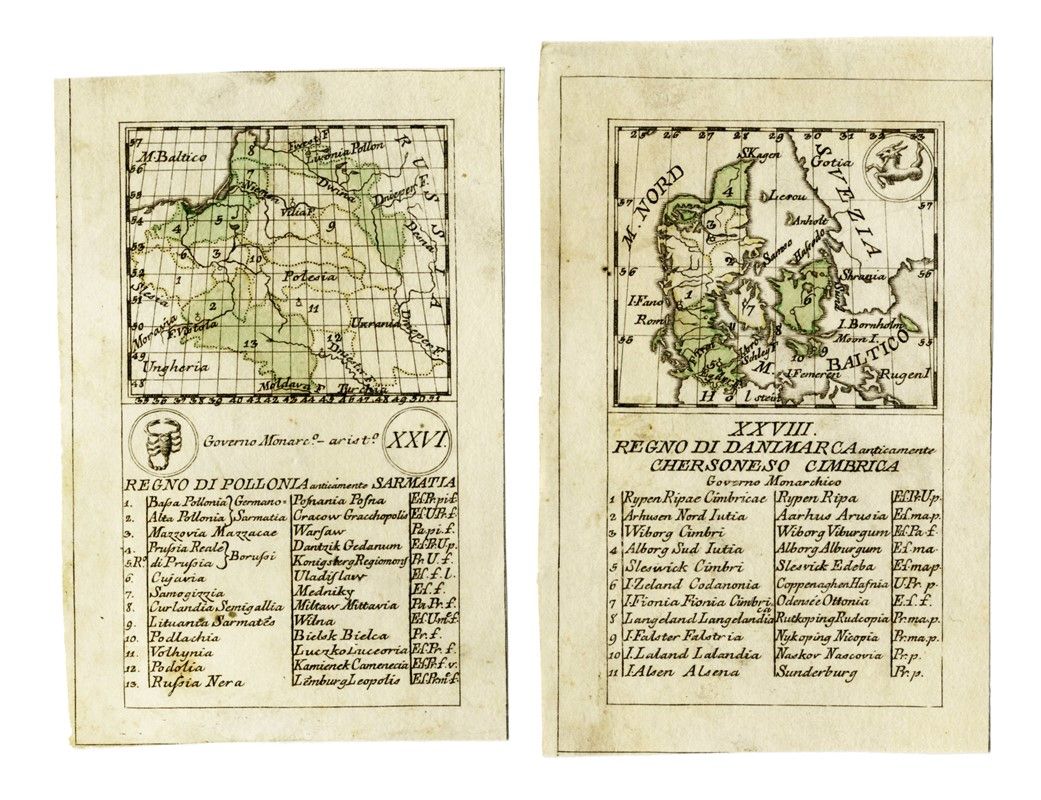 57
56
55
54
53
52
51
50
49
48
M. Baltico
8
7
Livonia Pollon
Dwina
Niemen
Vilia F.
RUSSIA
Dnieper
Desna
9
5
4
6
3
10
1
Polesia
2
11
Slesia
Moravia
F. Vistola
13
12
Ukrania
Dnieper F.
Dniester F.
Ungheria
Moldava F.
Turchia
35 36 37 38 39 40 41 42 43 44 45 46 47 48 49 50 51
Governo Monarc.º - arist.º
XXVI.
REGNO DI POLLONIA anticamente SARMATIA
1. Baſsa Pollonia } Germano= Poſnania Poſna Eſ.Pr.pi.f.
2. Alta Pollonia } Sarmatia Cracow Gracchopolis Eſ.U.Pr.f.
3. Mazzovia Mazzacae Warſaw Pa.pi.f.
4. Pruſsia Reale } Boruſsi Dantzik Gedanum Eſ.Pr.U.p.
5. R.º di Pruſsia } Konigsberg Regiomons Pr.U.f.
6. Cujavia Uladiſlaw Eſ.f.l.
7. Samogizzia Medniky Eſ.f.
8. Curlandia Semigallia Mittaw Mittavia Pa.Pr.f.
9. Lituania Sarmates Wilna
10. Podlachia Bielsk Bielca Pr.f.
11. Volhynia Luczko Luceoria Eſ.Pr.f.
12. Podolia Kamienek Camenecia Eſ.Pr.f.v.
13. Ruſsia Nera Lemburg Leopolis
25 26 27 28 29 30 31 32 33
57
56
55
M. NORD
S. Kagen
Gotia
SVEZIA
4
Lesou
Anholt
3
2
Samso
Hasendo
Skrania
Sund
1
I. Fano
Rom
7
6
I. Bornholm
Moon I.
5
8
10
9
M. BALTICO
I. Femeren
Rugen I
Holstein
XXVIII.
REGNO DI DANIMARCA anticamente
CHERSONESO CIMBRICA
Governo Monarchico
1 Rypen Ripae Cimbricae Rypen Ripa Eſ.Pr.U.p.
2 Arhusen Nord Iutia Aarhus Arusia Eſ.ma.p.
3 Wiborg Cimbri Wiborg Viburgum Eſ.Pa.f.
4 Alborg Sud Iutia Alborg Alburgum Eſ.ma.
5 Sleswick Cimbri Slesvick Edeba Eſ.ma.p.
6 I. Zeland Codanonia Coppenaghen Hafnia U.Pr.p.
7 I. Fionia Fionia Cimbri Odensèe Ottonia E.ſ.f.
8 Langeland Langelandia Rutkoping Rudcopia Pr.ma.p.
9 I. Falster Falstria Nykoping Nicopia Pr.ma.p.
10 I. Laland Lalandia Naskov Nascovia Pr.p.
11 I. Alsen Alsena Sunderburg Pr.p.